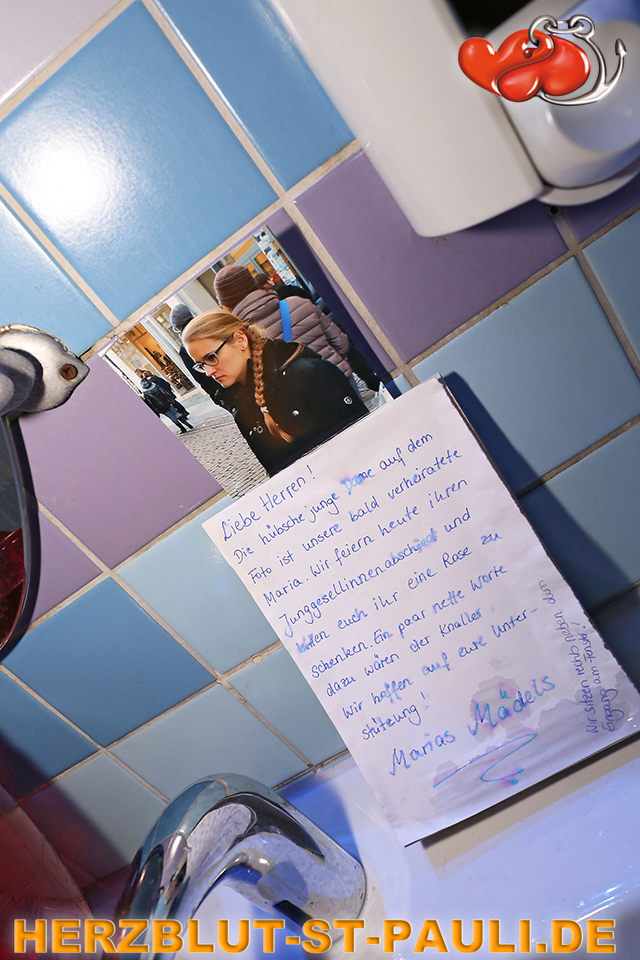 Liebe Herren!
Die hübsche junge Dame auf dem
Foto ist unsere bald verheiratete
Maria. Wir feiern heute ihren
Junggesellinnenabschied und
bitten euch ihr eine Rose zu
schenken. Ein paar nette Worte
dazu wären der Knaller.
Wir hoffen auf eure Unter-
stützung!
Marias Mädels
Wir sitzen rechts neben dem
Eingang am Fenster!
HERZBLUT-ST-PAULI.DE